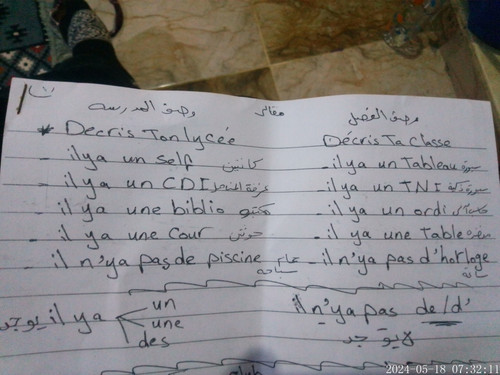 وصف المدرسه مقالى وصف الفصل
* Decris Ton lycée Décris Ta classe
- il ya un self كانتين - il ya un Tableau سبورة
- il ya un CDI - il ya un TNI سبورة ذكية
- il ya une biblio مكتبه - il ya un ordi
- il ya une Cour حوش - il ya une Table
- il n'ya pas de piscine حمام سباحه - il n'ya pas d'horloge ساعة
يوجد il ya un il n'ya pas de/d'
une لا يوجد
des
2024-05-18 07:32:11